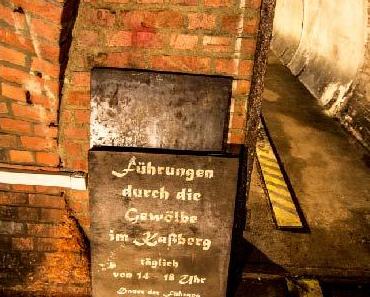 Führungen
durch die
Gewölbe
im Kaßberg
täglich
von 14 - 18 Uhr
Dauer der Führung